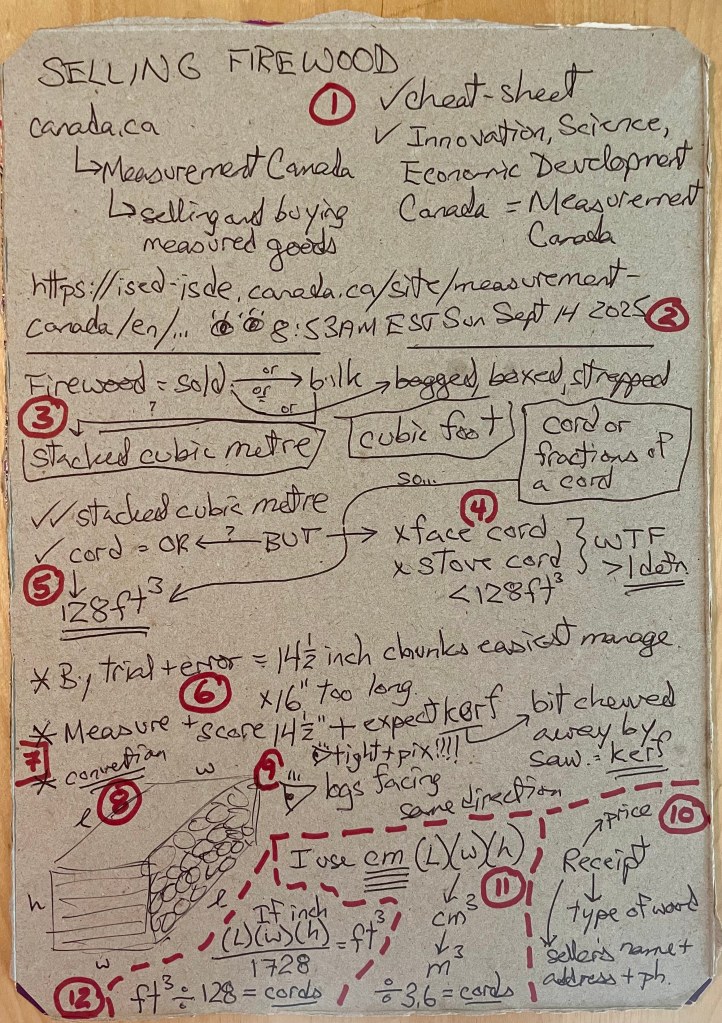 SELLING FIREWOOD
①
canada.ca
↳ Measurement Canada
↳ selling and buying
measured goods
✓ cheat-sheet
✓ Innovation, Science,
Economic Development
Canada = Measurement
Canada
https://ised-isde.canada.ca/site/measurement-
canada/en/... 8:53AM EST Sun Sept 14 2025 ②
Firewood = sold or → bulk → bagged, boxed, strapped
or
? or
③
stacked cubic metre
cubic foot
cord or
fractions of
a cord
so...
✓✓ stacked cubic metre
✓ cord = OR ← ? BUT →
④
x face cord
x stove cord
<128ft³
} WTF
>1 defn
⑤
128ft³
* By trial + error = 14 1/2 inch chunks easiest manage.
⑥ x16" too long.
* Measure + score 14 1/2" + expect kerf → bit chewed
away by
saw. = kerf
7
* convention
tight + pix!!!!
⑨ logs facing
same direction
⑧
w
l
h
l
w
I use cm (L)(w)(h)
⑪
cm³
m³
÷ 3.6 = cords
If inch
(L)(w)(h) = ft³
1728
⑫
ft³ ÷ 128 = cords
⑩
price
Receipt
type of wood
seller's name +
address + ph.